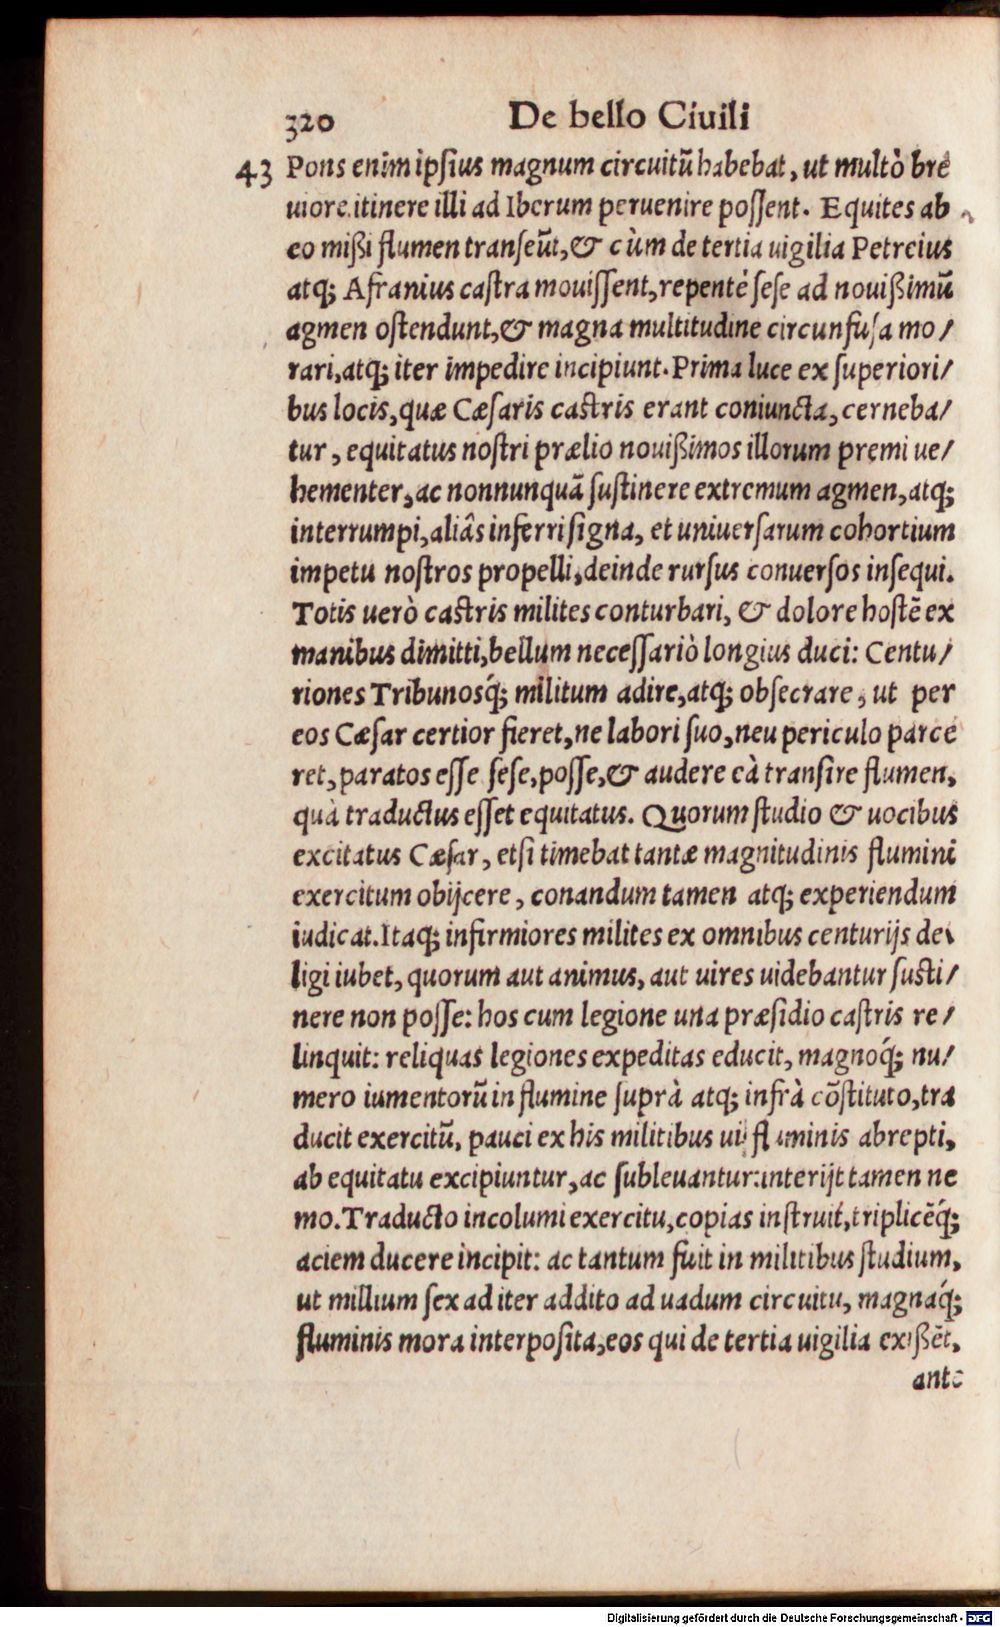 320 De bello Ciuili
43 Pons enim ipſius magnum circuitũ habebat, ut multò bre
uiore itinere illi ad Iberum peruenire poſſent. Equites ab
eo mißi flumen tranſeũt, & cùm de tertia uigilia Petreius
atq; Afranius caſtra mouiſſent, repentè ſeſe ad nouißimũ
agmen oſtendunt, & magna multitudine circunfuſa mo/
rari, atq; iter impedire incipiunt. Prima luce ex ſuperiori/
bus locis, quæ Cæſaris caſtris erant coniuncta, cerneba/
tur, equitatus noſtri prælio nouißimos illorum premi ue/
hementer, ac nonnunquã ſuſtinere extremum agmen, atq;
interrumpi, aliâs inferri ſigna, et uniuerſarum cohortium
impetu noſtros propelli, deinde rurſus conuerſos inſequi.
Totis uerò caſtris milites conturbari, & dolore hoſtẽ ex
manibus dimitti, bellum neceſſariò longius duci: Centu/
riones Tribunosq́; militum adire, atq; obſecrare, ut per
eos Cæſar certior fieret, ne labori ſuo, neu periculo parce
ret, paratos eſſe ſeſe, poſſe, & audere eà tranſire flumen,
quà traductus eſſet equitatus. Quorum ſtudio & uocibus
excitatus Cæſar, etſi timebat tantæ magnitudinis flumini
exercitum obijcere, conandum tamen atq; experiendum
iudicat. Itaq; infirmiores milites ex omnibus centurijs de
ligi iubet, quorum aut animus, aut uires uidebantur ſuſti/
nere non poſſe: hos cum legione una præſidio caſtris re/
linquit: reliquas legiones expeditas educit, magnoq́; nu/
mero iumentorũ in flumine ſuprà atq; infrà cõſtituto, tra
ducit exercitũ. pauci ex his militibus ui fluminis abrepti,
ab equitatu excipiuntur, ac ſubleuantur: interijt tamen ne
mo. Traducto incolumi exercitu, copias inſtruit, triplicẽq́;
aciem ducere incipit: ac tantum fuit in militibus ſtudium,
ut millium ſex ad iter addito ad uadum circuitu, magnaq́;
fluminis mora interpoſita, eos qui de tertia uigilia exißẽt,
ante
Digitalisierung gefördert durch die Deutsche Forschungsgemeinschaft - DFG